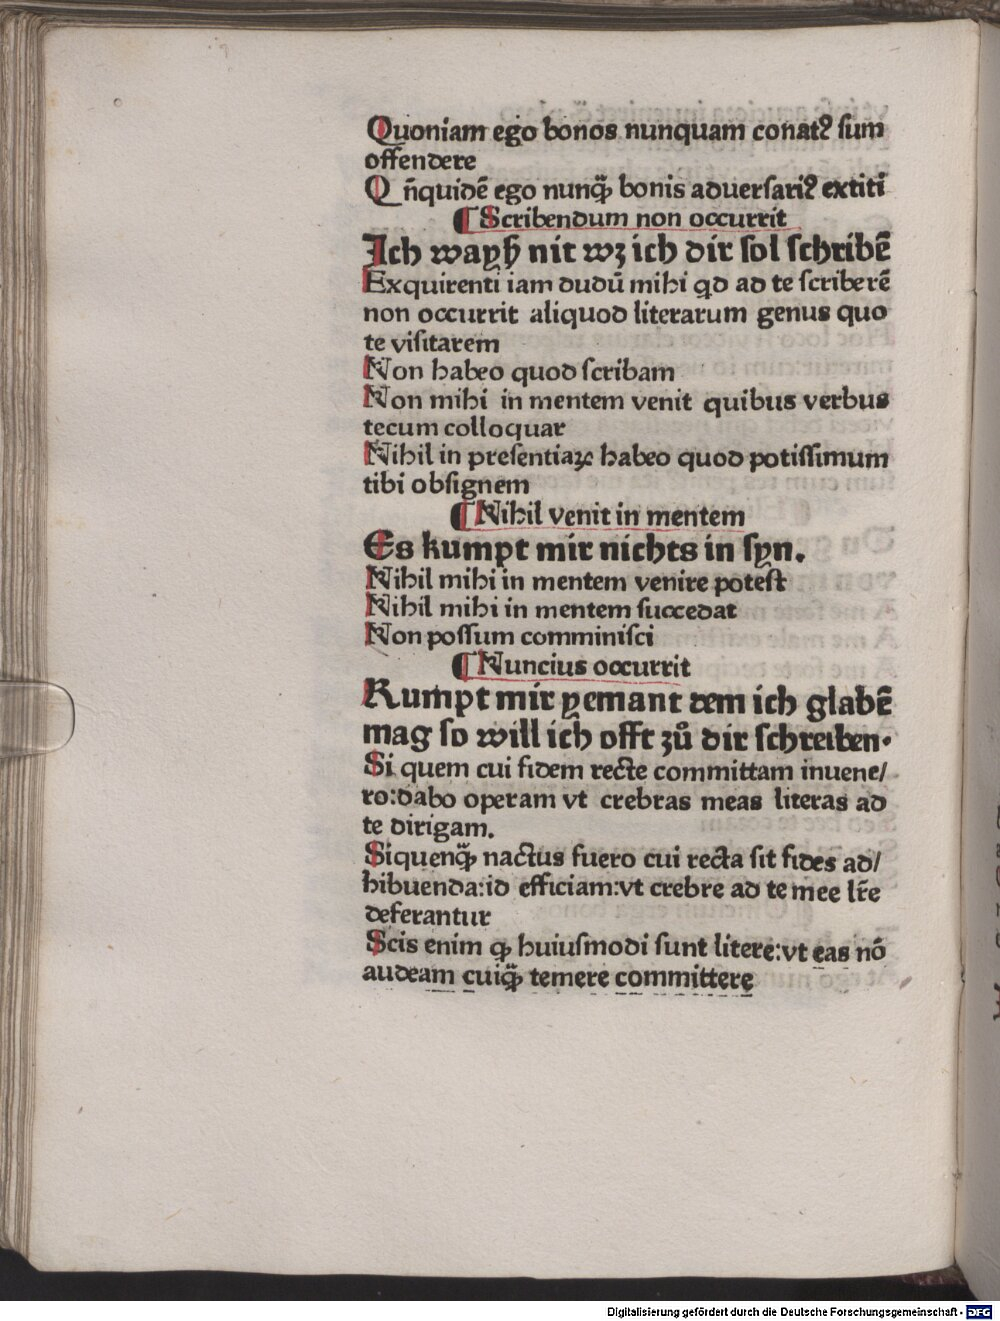 Quoniam ego bonos nunquam conatꝰ ſum
offendere
Qn̄quidē ego nunq̄ꝫ bonis aduerſariꝰ extiti
¶ Scribendum non occurrit
Ich wayß nit wz ich dir ſol ſchribē
Exquirenti iam dudū mihi qd ad te ſcriberē
non occurrit aliquod literarum genus quo
te viſitarem
Non habeo quod ſcribam
Non mihi in mentem venit quibus verbus
tecum colloquar
Nihil in preſentiaꝝ habeo quod potiſſimum
tibi obſignem
¶ Nihil venit in mentem
Es kumpt mir nichts in ſyn.
Nihil mihi in mentem venire poteſt
Nihil mihi in mentem ſuccedat
Non poſſum comminiſci
¶ Nuncius occurrit
Kumpt mir yemant dem ich glabē
mag ſo will ich offt zů dir ſchreiben.
Si quem cui fidem recte committam inuene/
ro:dabo operam vt crebras meas literas ad
te dirigam.
Siquenq̄ꝫ nactus fuero cui recta ſit fides ad/
hibuenda:id efficiam:vt crebre ad te mee lr̄e
deferantur
Scis enim ꝙ huiuſmodi ſunt litere:vt eas nō
audeam cuiq̄ꝫ temere committere
Digitalisierung gefördert durch die Deutsche Forschungsgemeinschaft - DFG